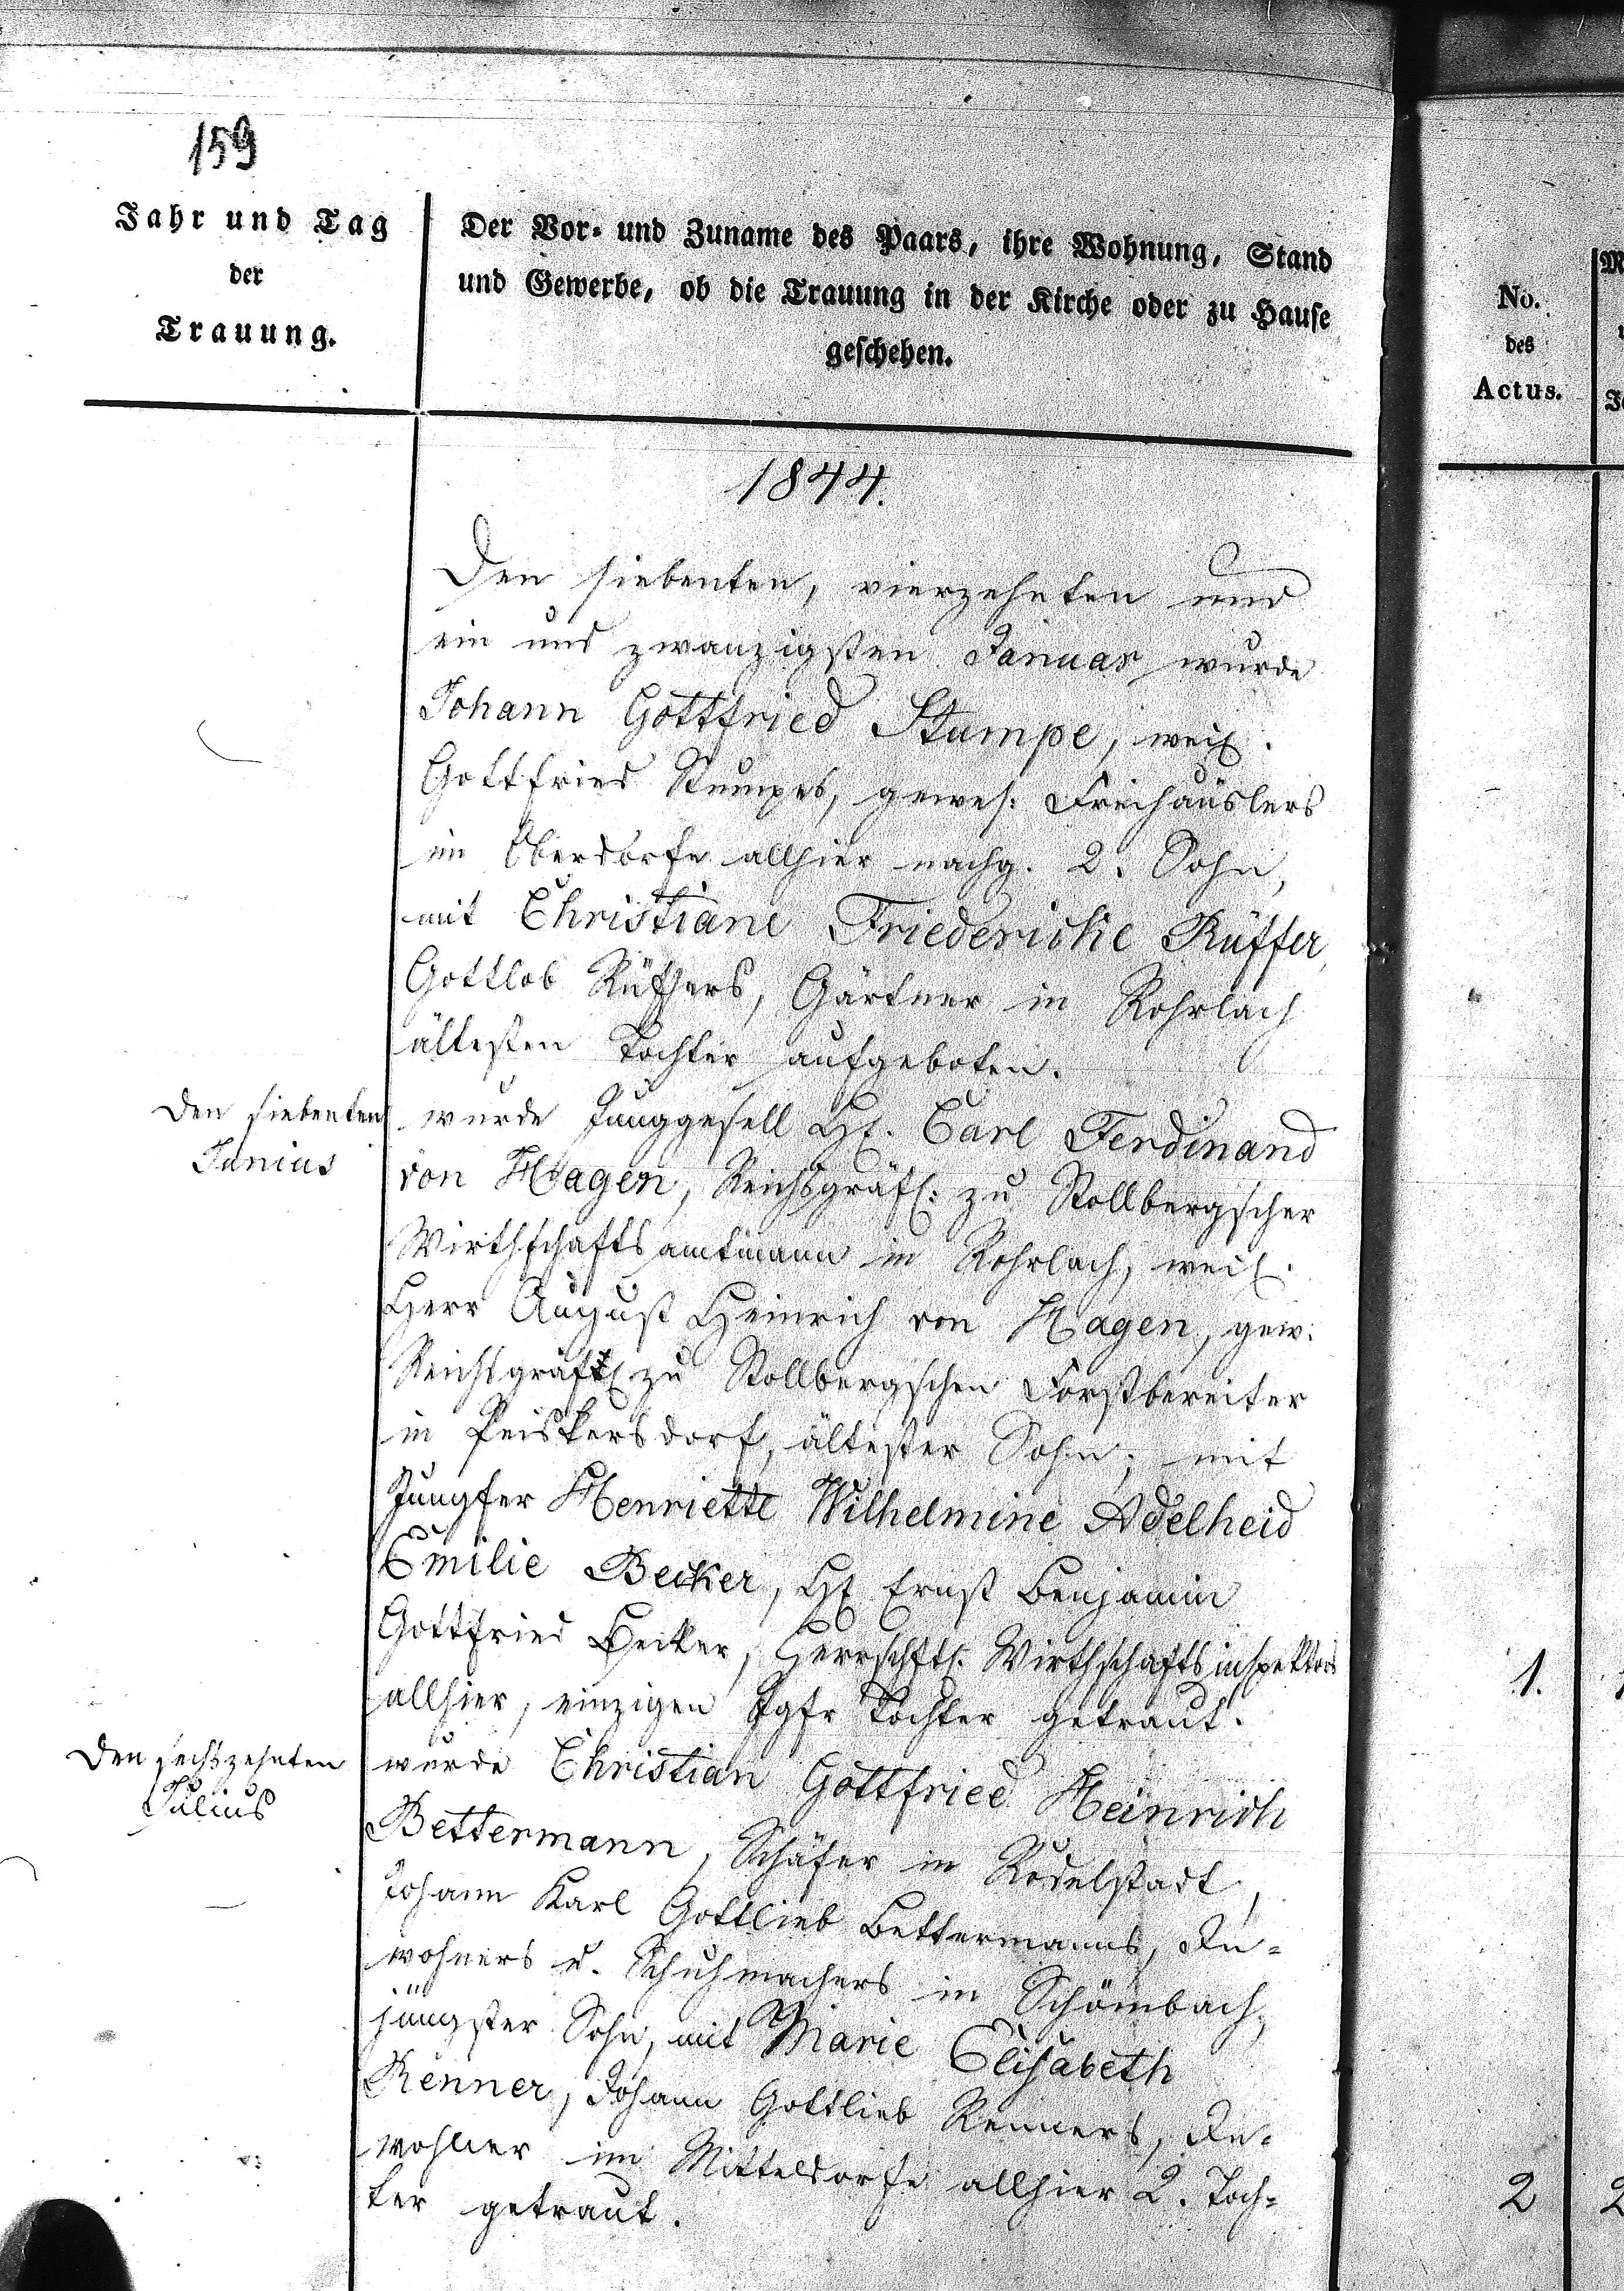 159
Jahr und Tag
der
Trauung.
Der Vor- und Zuname des Paars, ihre Wohnung, Stand
und Gewerbe, ob die Trauung in der Kirche oder zu Hause
geschehen.
No.
des
Actus.
1844.
Den siebenten, vierzehnten und
ein und zwanzigsten Januar wurde
Johann Gottfried Stumpe, weil.
Gottfried Stumpes, gewes. Freihäuslers
im Oberdorfe allhier nachg. 2. Sohn,
mit Christiane Friedericke Rüffer,
Gottlob Rüffers, Gärtner in Rohrlach
ältesten Tochter aufgeboten.
Den siebenten
Junius
wurde Junggesell H. Carl Ferdinand
von Hagen, Reichsgräfl: zu Stollbergscher
Wirthschaftsamtmann in Rohrlach, weil.
Herr August Heinrich von Hagen, gew.
Reichsgräfl zu Stollbergschen Forstbereiter
in Peiskersdorf, ältester Sohn; mit
Jungfer Henriette Wilhelmine Adelheid
Emilie Becker, H Ernst Benjamin
Gottfried Becker, Herrschftl. Wirthschaftsinspektors
allhier, einzigen Jgfr Tochter getraut.
1.
Den sechszehnten
Julius
wurde Christian Gottfried Heinrich
Bettermann, Schäfer in Rudelstadt,
Johann Karl Gottlieb Bettermanns, In-
wohners u. Schuhmachers in Schömbach,
jüngster Sohn, mit Marie Elisabeth
Renner, Johann Gottlieb Renners, In-
wohner im Mitteldorfe allhier 2. Toch-
ter getraut.
2